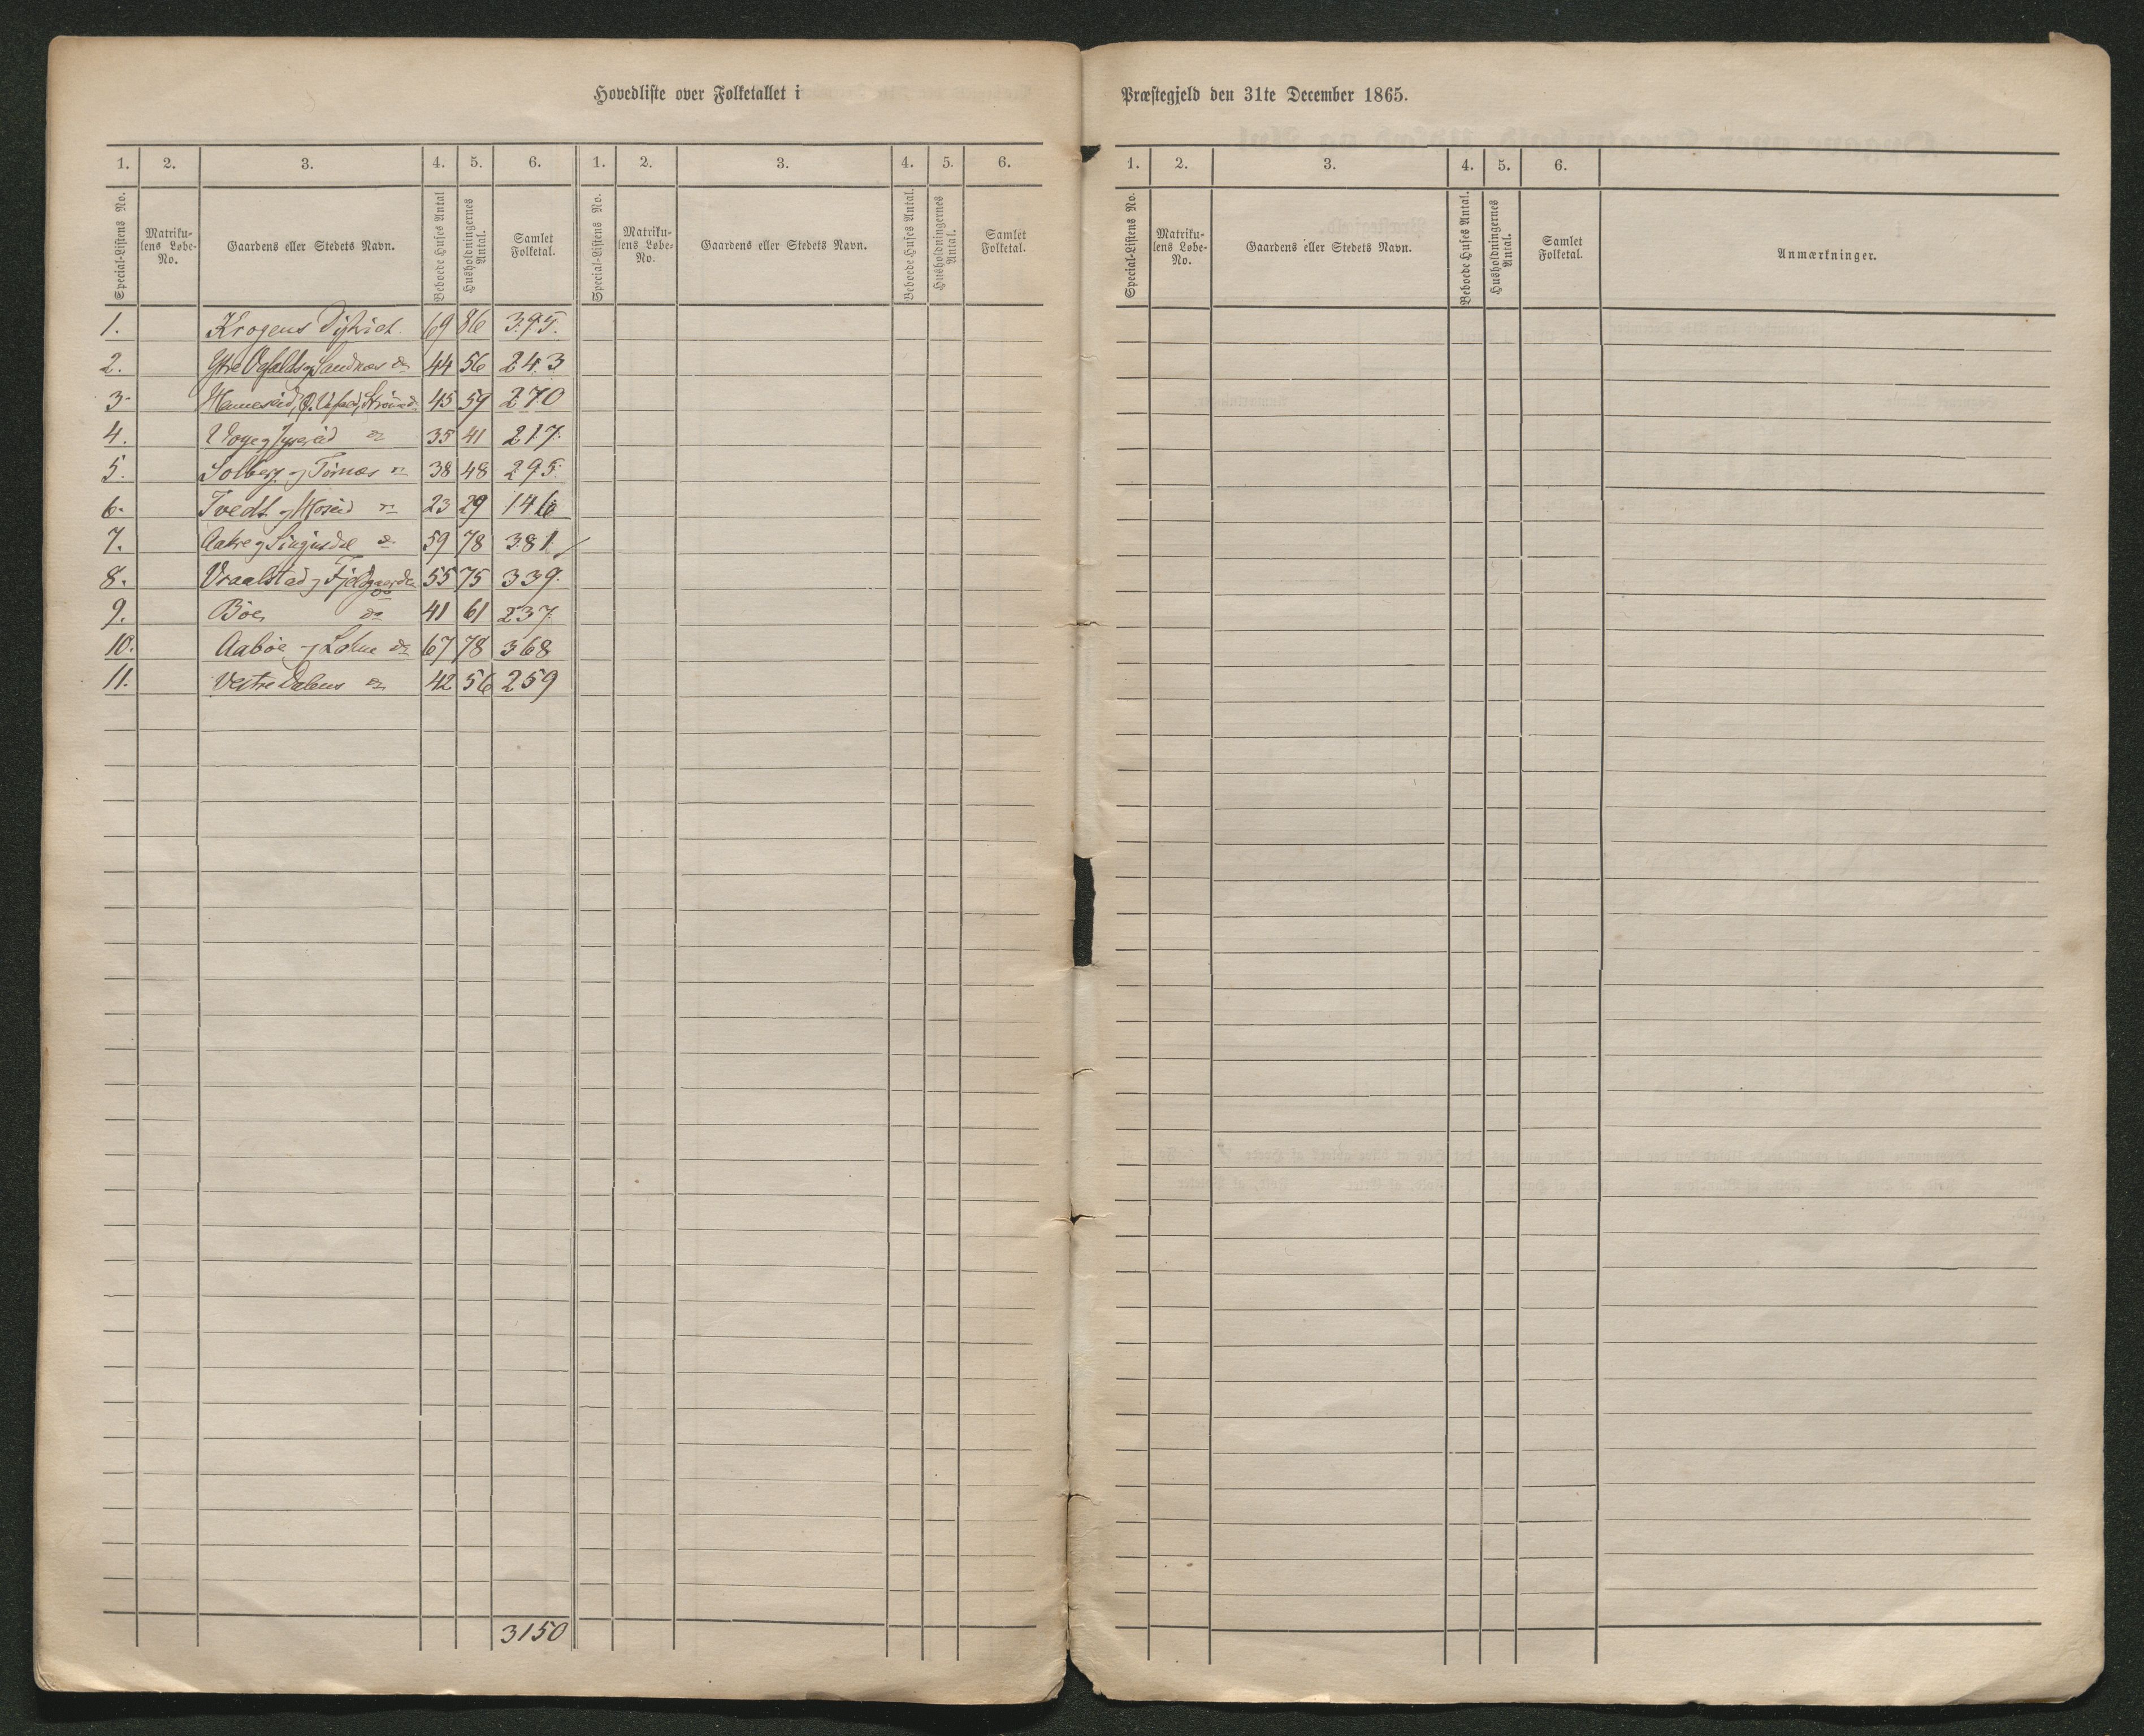 Hovedliste over Folketallet i Præstegjeld den 31te December 1865.
1. 2. 3. 4. 5. 6. 1. 2. 3. 4. 5. 6. 1. 2. 3. 4. 5. 6.
Special-Listens No. Matrikulens Løbe-No. Gaardens eller Stedets Navn. Beboede Huses Antal Husholdningernes Antal. Samlet Folketal.
Special-Listens No. Matrikulens Løbe-No. Gaardens eller Stedets Navn. Beboede Huses Antal. Husholdningernes Antal. Samlet Folketal.
Special-Listens No. Matrikulens Løbe-No. Gaardens eller Stedets Navn. Beboede Huses Antal. Husholdningernes Antal. Samlet Folketal. Anmærkninger.
1. Krogens District 69 86 395.
2. Ytre Vefalds og Sandnes do 44 56 243
3. 45 59 270
4. 35 41 217.
5. Solberg og Tørnæs do 38 48 295
6. Tvedt og 23 29 146
7. Aakre og do 59 78 381
8. Vraalstad og Fjeldgaardenes do 55 75 339.
9. Böe do 41 61 237.
10. Aaböe og Lohne do 67 78 368
11. Vestre Dalens do 42 56 259
3150